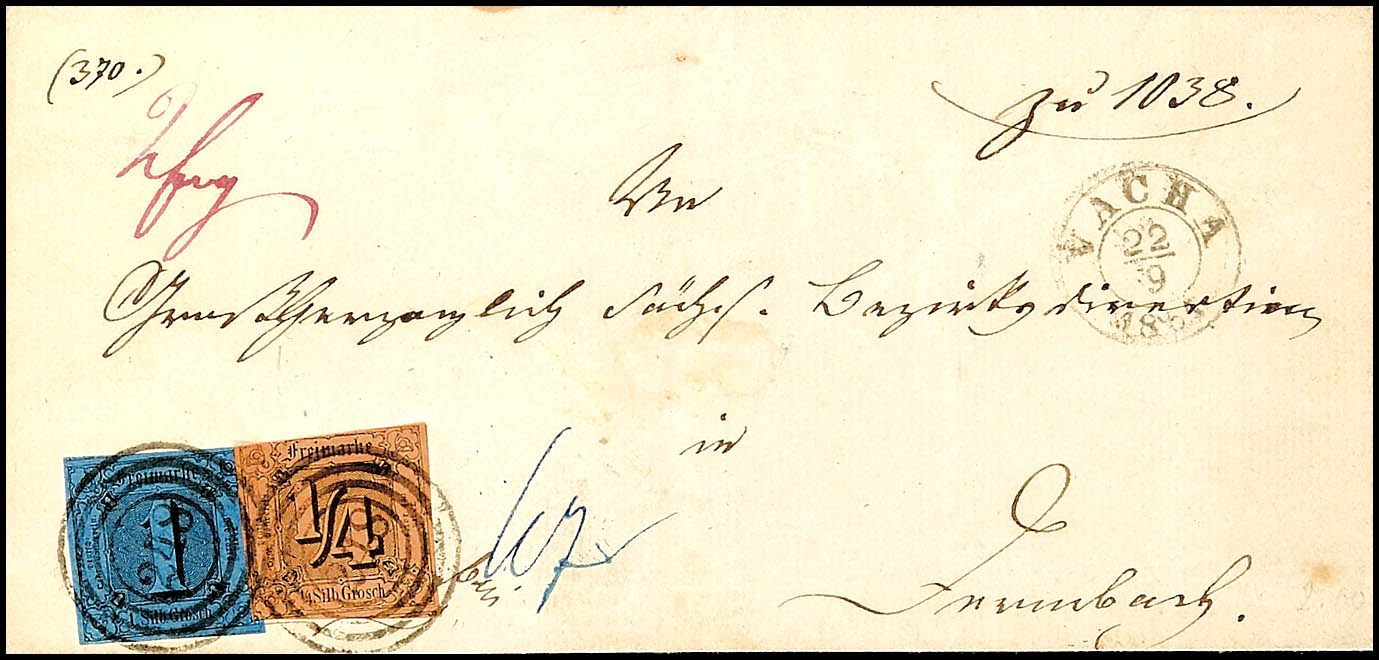 (370.)
zu 1038.
An
VACHA
22
9
Großherzoglich Sächs. Bezirksdirection
in
Dermbach.
Freimarke
1
1 Silb. Grosch
Freimarke
1/4
1/4 Silb. Grosch